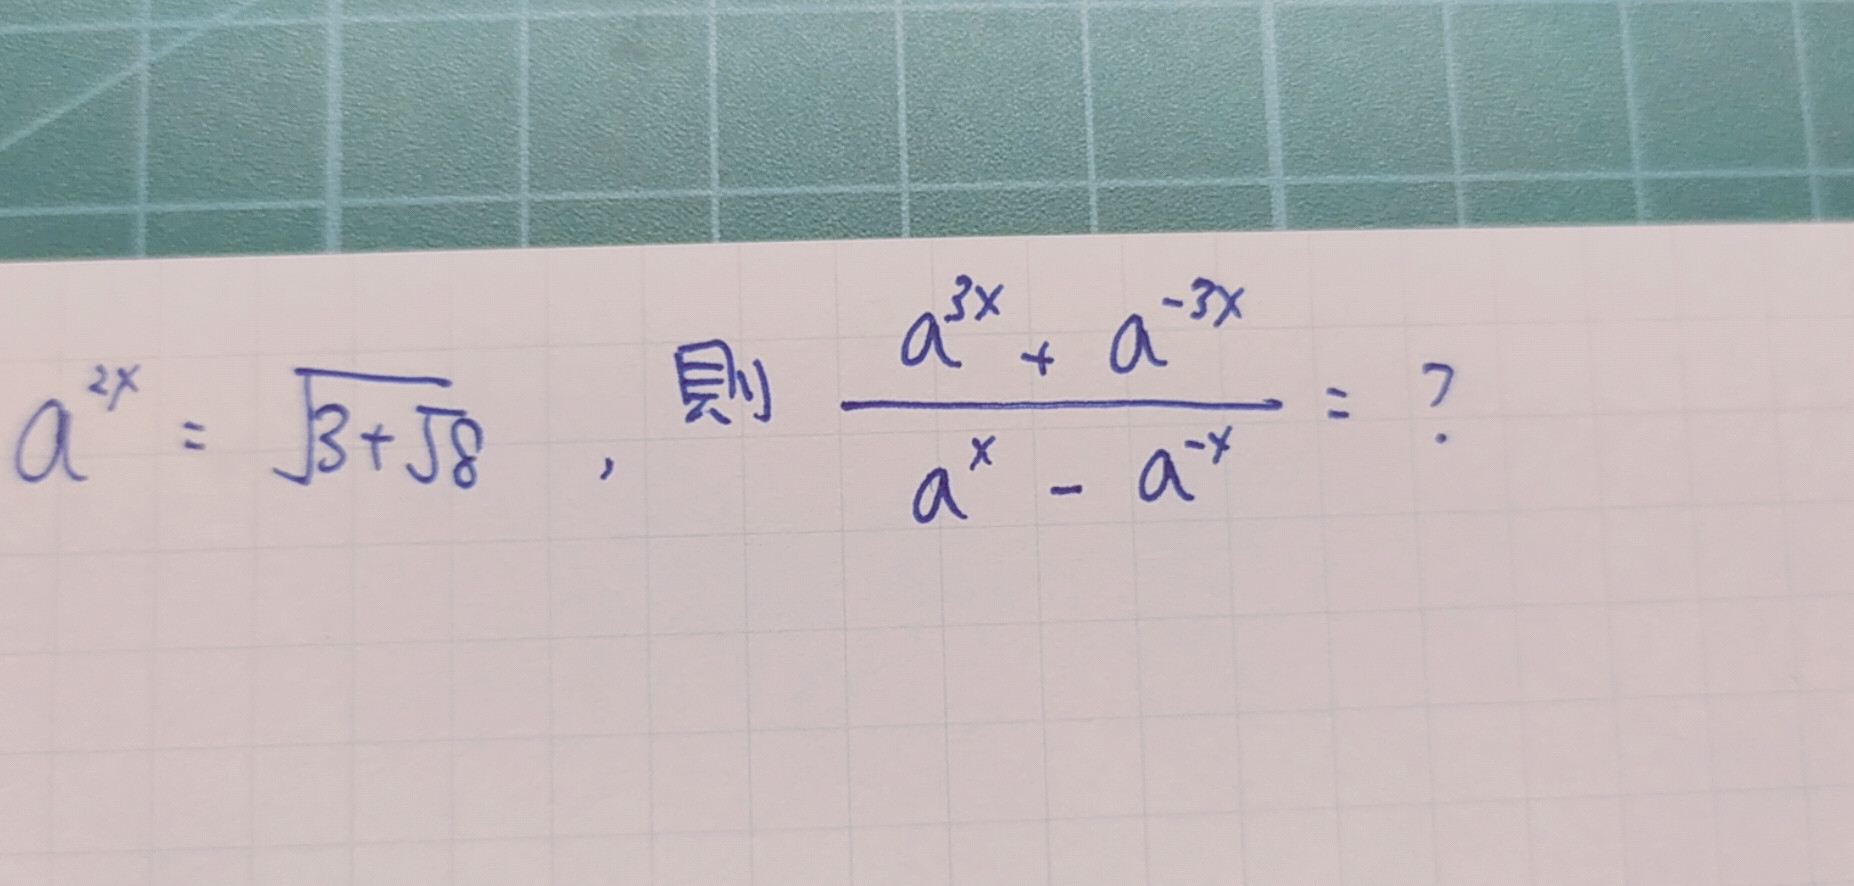 a^{2x} = \sqrt{3+\sqrt{8}} , 則 \frac{a^{3x} + a^{-3x}}{a^{x} - a^{-x}} = ?